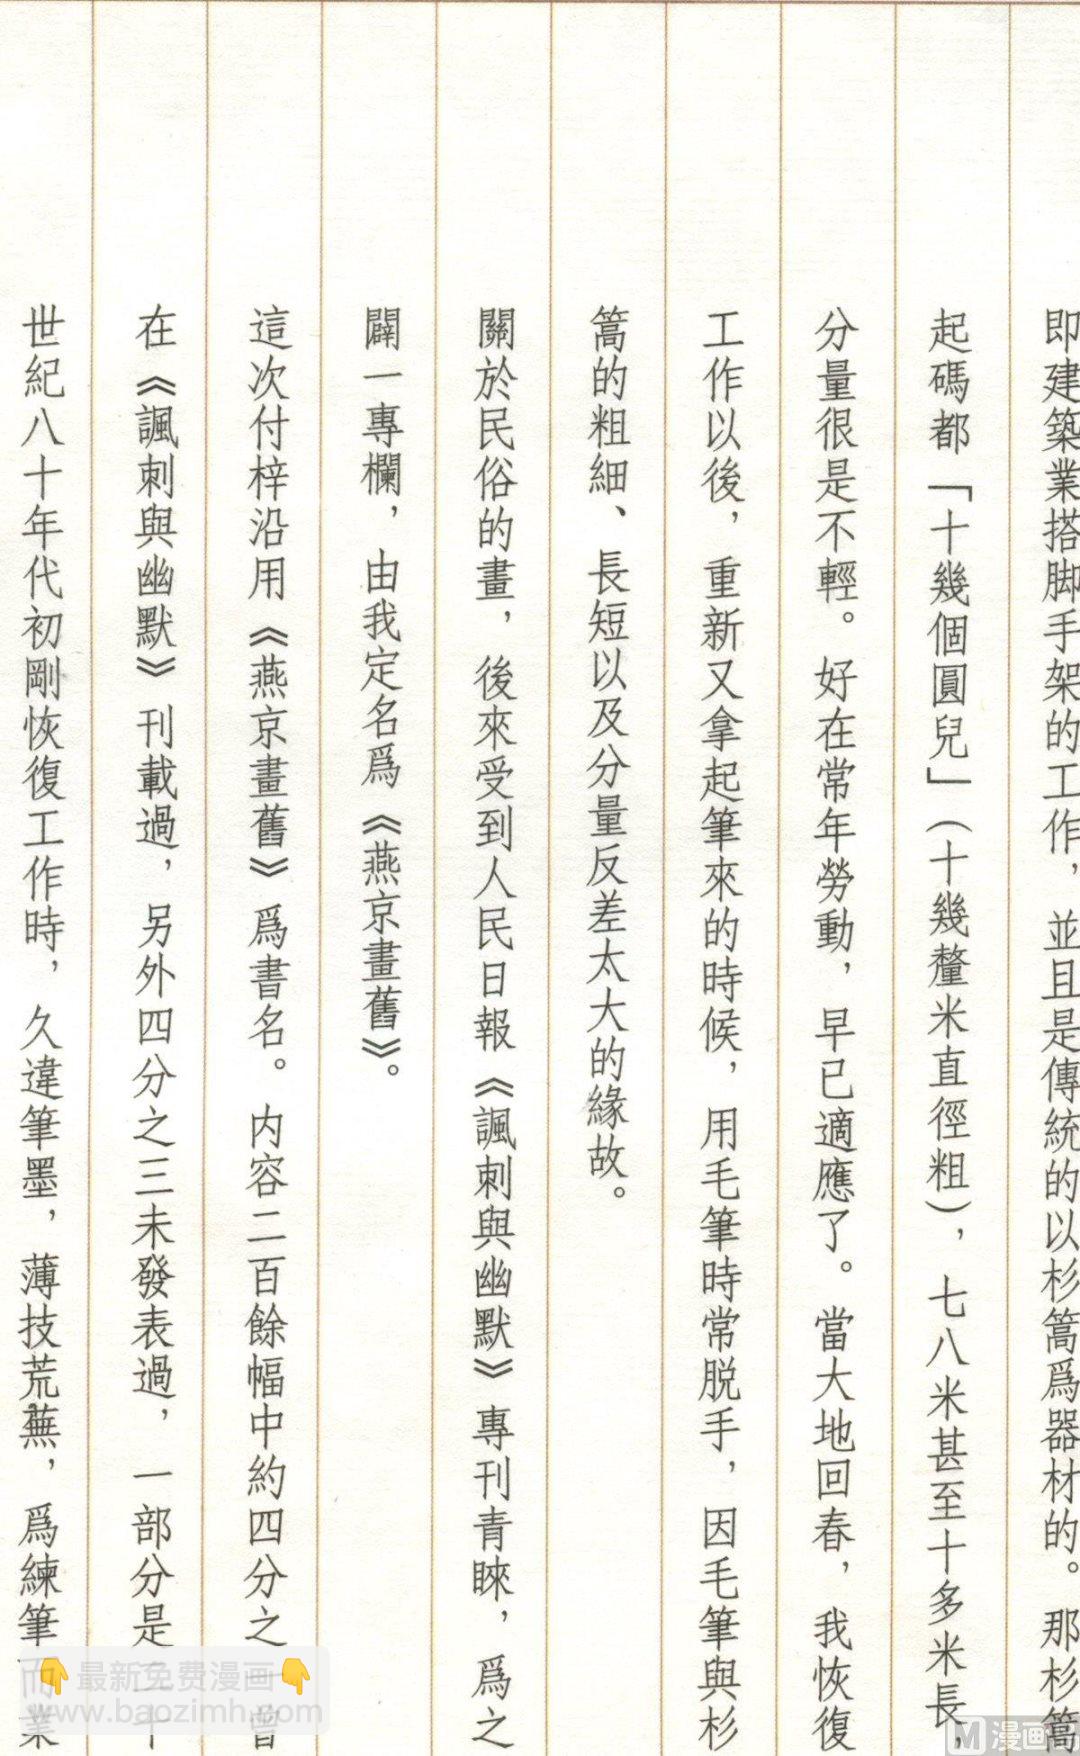 即建築業搭脚手架的工作，並且是傳統的以杉篙爲器材的。那杉篙
起碼都「十幾個圓兒」（十幾釐米直徑粗），七八米甚至十多米長，
分量很是不輕。好在常年勞動，早已適應了。當大地回春，我恢復
工作以後，重新又拿起筆來的時候，用毛筆時常脱手，因毛筆與杉
篙的粗細、長短以及分量反差太大的緣故。
關於民俗的畫，後來受到人民日報《諷刺與幽默》專刊青睞，爲之
闢一專欄，由我定名爲《燕京畫舊》。
這次付梓沿用《燕京畫舊》爲書名。内容二百餘幅中約四分之一曾
在《諷刺與幽默》刊載過，另外四分之三未發表過，一部分是二十
世紀八十年代初剛恢復工作時，久違筆墨，薄技荒蕪，爲練筆而業
👇最新免费漫画👇
www.baozimh.com
M漫画